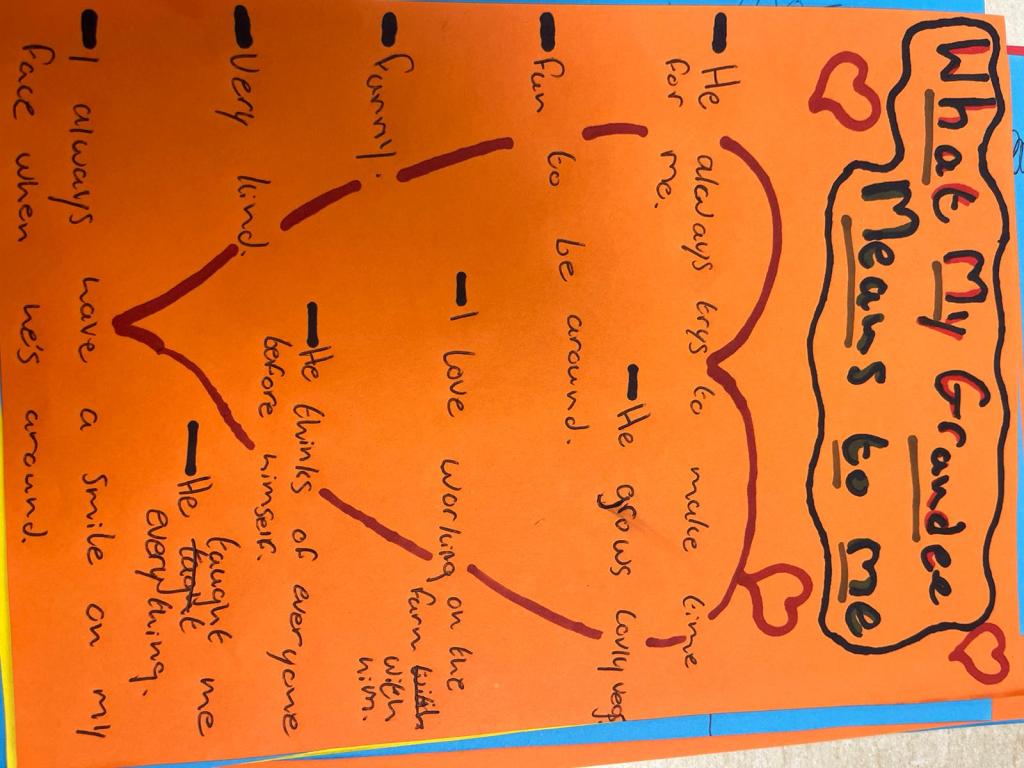 What My Grandee
Means to me
- He always trys to make time
for me.
- He grows lovly veg.
- Fun to be around.
- I love working on the
farm with
with
him.
- Funny.
- He thinks of everyone
before himself.
- Very kind.
- He taught me
taght
everything.
- I always have a smile on my
face when he's around.